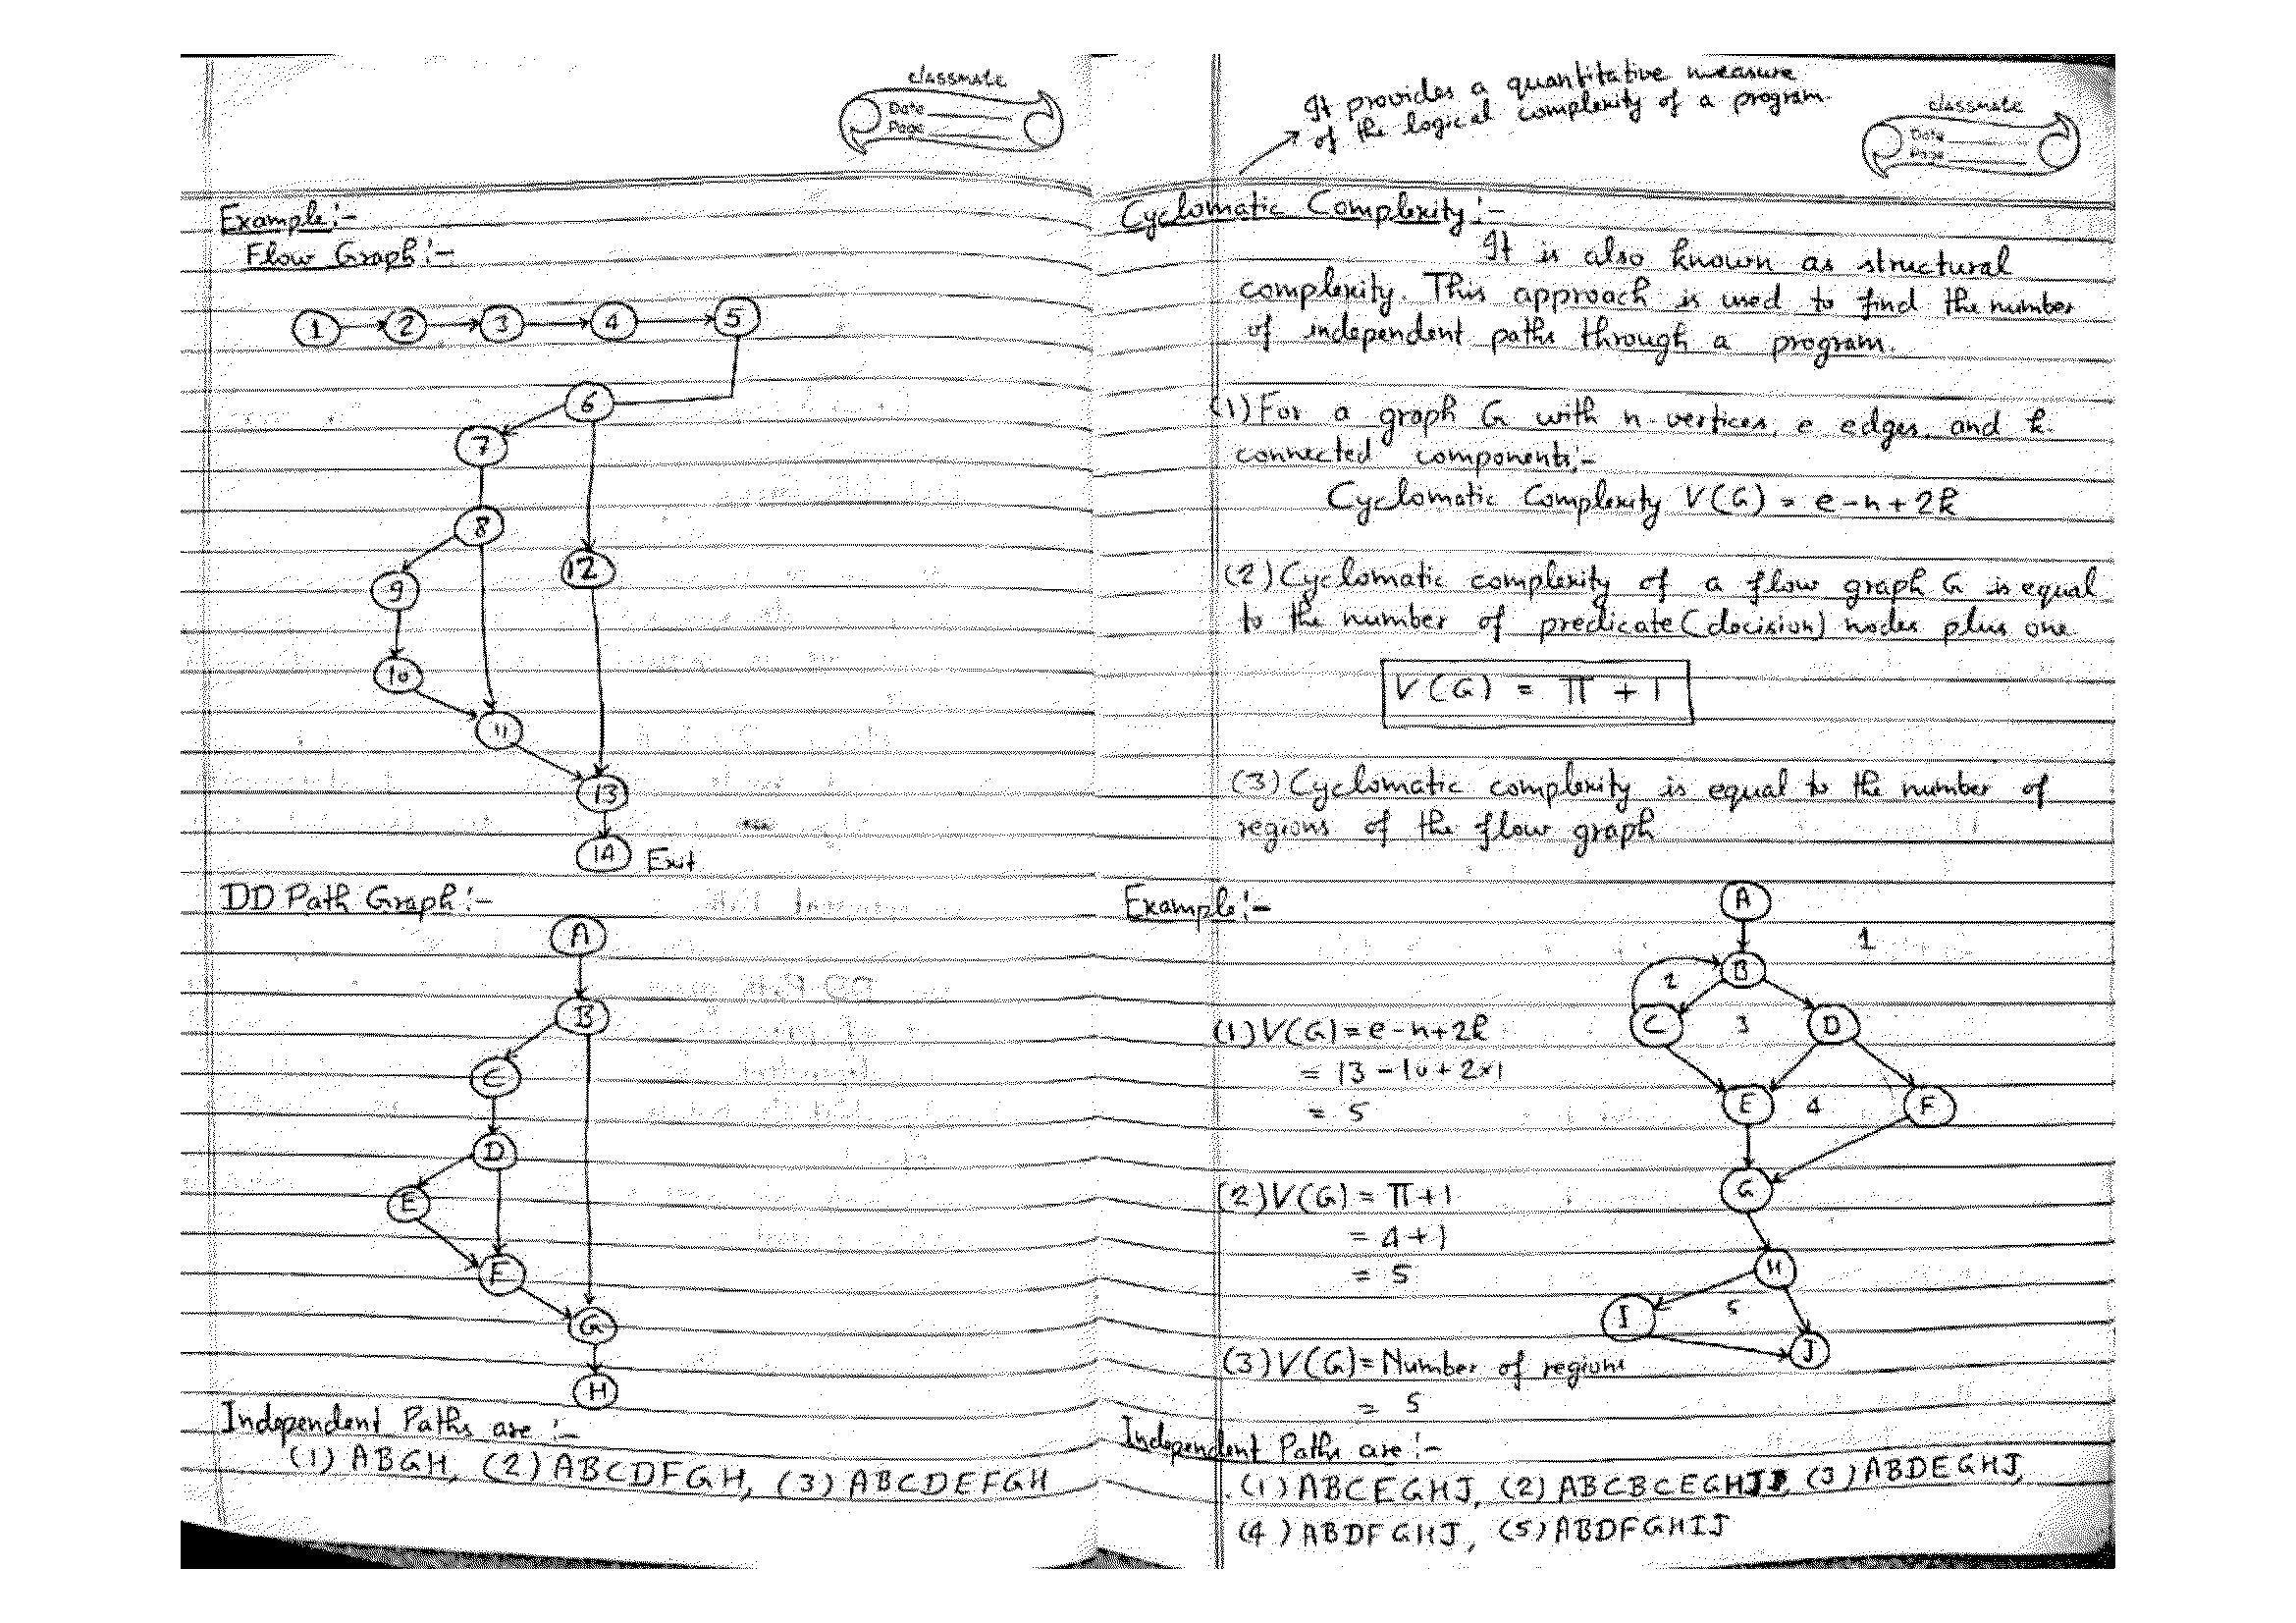 classmate
Date
Page
Example:-
Flow Graph:-
1 2 3 4 5
6
7
8
12
9
10
11
13
14 Exit
DD Path Graph:-
A
B
C
D
E
F
G
H
Independent Paths are :-
(1) ABGH, (2) ABCDFGH, (3) ABCDEFGH
It provides a quantitative measure
of the logical complexity of a program.
classmate
Date
Page
Cyclomatic Complexity:-
It is also known as structural
complexity. This approach is used to find the number
of independent paths through a program.
(1) For a graph G with n vertices, e edges, and k
connected components:-
Cyclomatic Complexity V(G) = e-n+2k
(2) Cyclomatic complexity of a flow graph G is equal
to the number of predicate (decision) nodes plus one.
V(G) = π + 1
(3) Cyclomatic complexity is equal to the number of
regions of the flow graph
Example:-
A
1
B
2
C 3 D
(1) V(G) = e-n+2k
= 13-10+2×1
= 5
E 4 F
G
(2) V(G) = π+1
= 4+1
= 5
H
I 5
J
(3) V(G) = Number of regions
= 5
Independent Paths are:-
(1) ABCEGHJ, (2) ABCBCEGHIJ, (3) ABDEGHJ,
(4) ABDFGHJ, (5) ABDFGHIJ